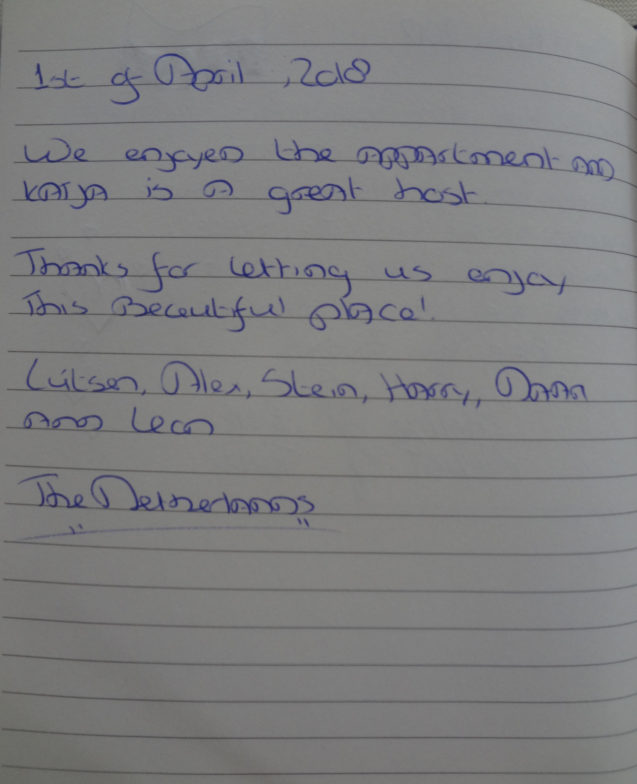 1st of April, 2018
We enjoyed the appartment and
Katja is a great host.
Thanks for letting us enjoy
This Beceutiful place!
Luitsen, Alex, Stein, Harry, Daan
and Leon
The Netherlands